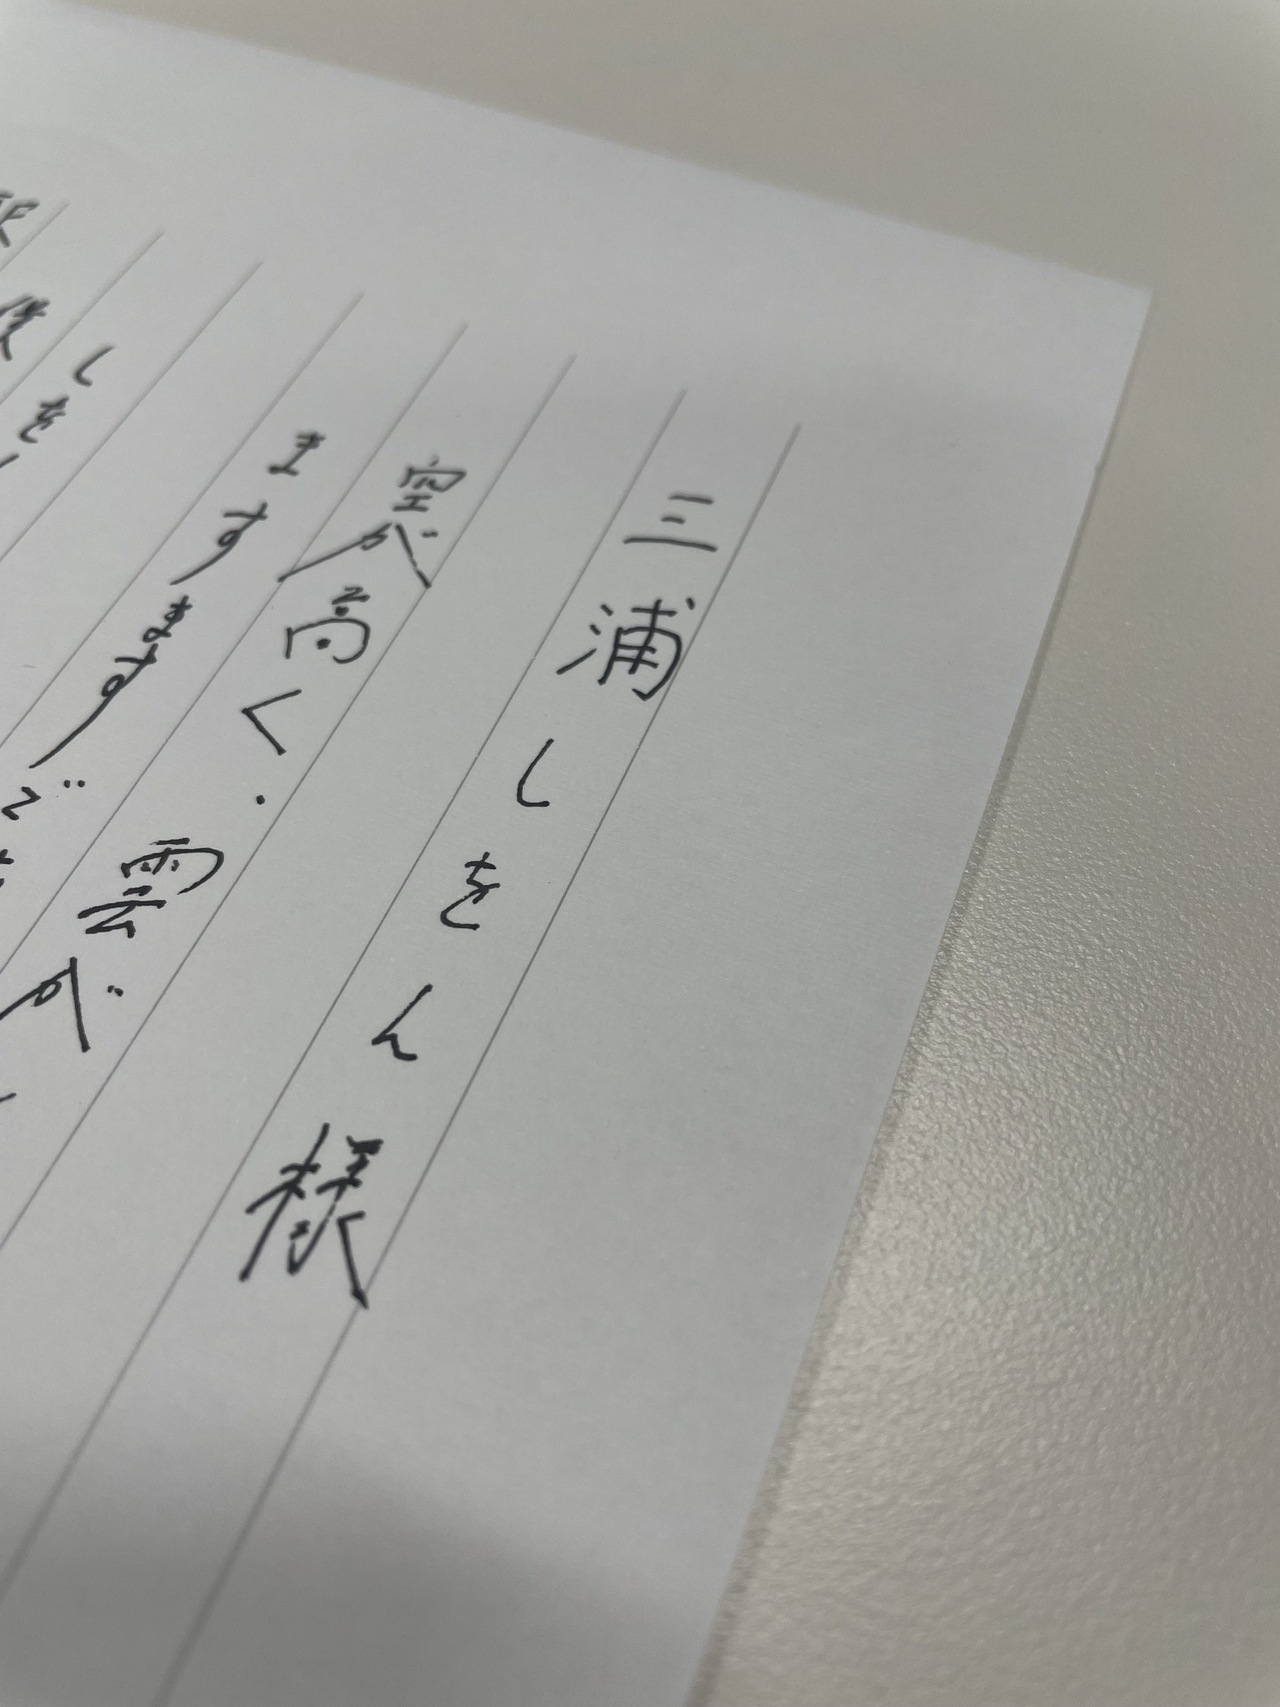 三浦しをん様
空が高く、雲が
ますますで
しを